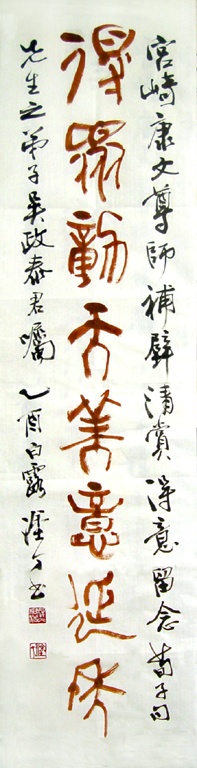 宮崎康文尊師補壁清賞得意留念荀子句
得眾動天美意延年
先生之弟子吳政泰君囑 乙酉白露 书